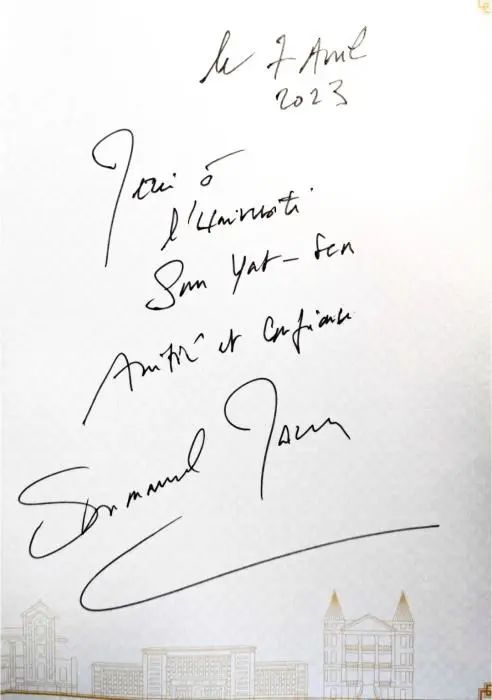 le 7 Avril
2023
Merci à
l'Université
Sun Yat-Sen
Amitié et Confiance
Emmanuel Macron